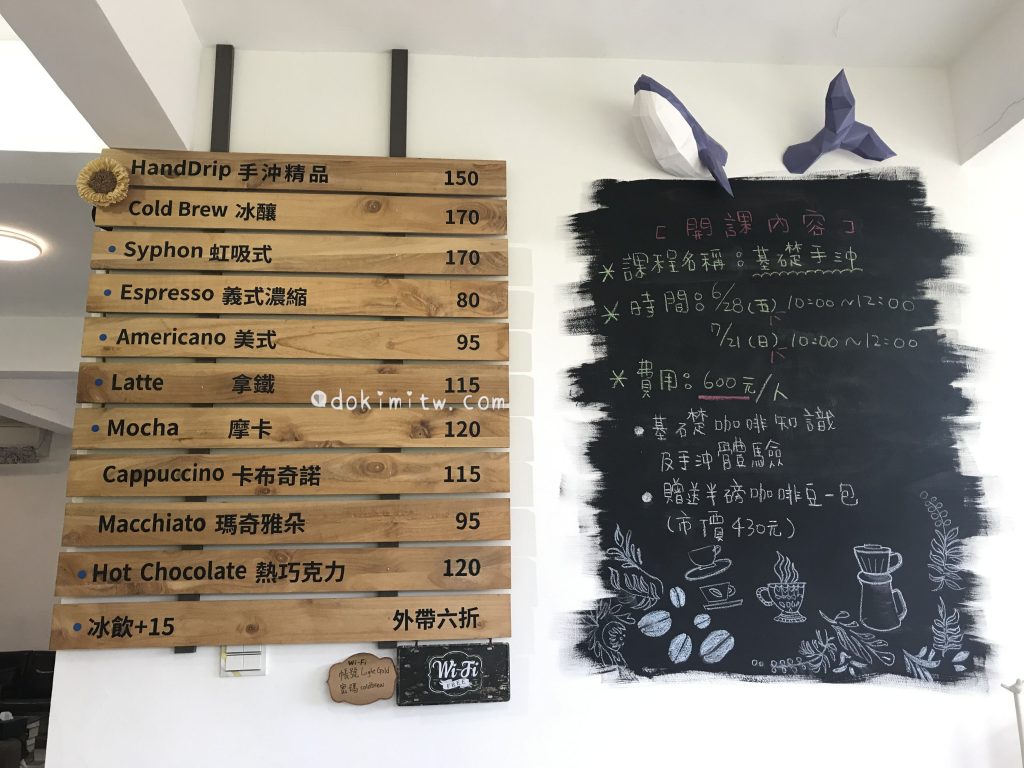 HandDrip 手沖精品 150
Cold Brew 冰釀 170
Syphon 虹吸式 170
Espresso 義式濃縮 80
Americano 美式 95
Latte 拿鐵 115
Mocha 摩卡 120
Cappuccino 卡布奇諾 115
Macchiato 瑪奇雅朵 95
Hot Chocolate 熱巧克力 120
冰飲+15 外帶六折
dokimitw.com
Wi-Fi
帳號 Light Gold
密碼 coldbrew
Wi-Fi
[開課內容]
課程名稱:基礎手沖
時間:6/28(五) 10:00~12:00
7/21(日) 10:00~12:00
費用:600元/人
基礎咖啡知識
及手沖體驗
贈送半磅咖啡豆一包
(市價430元)